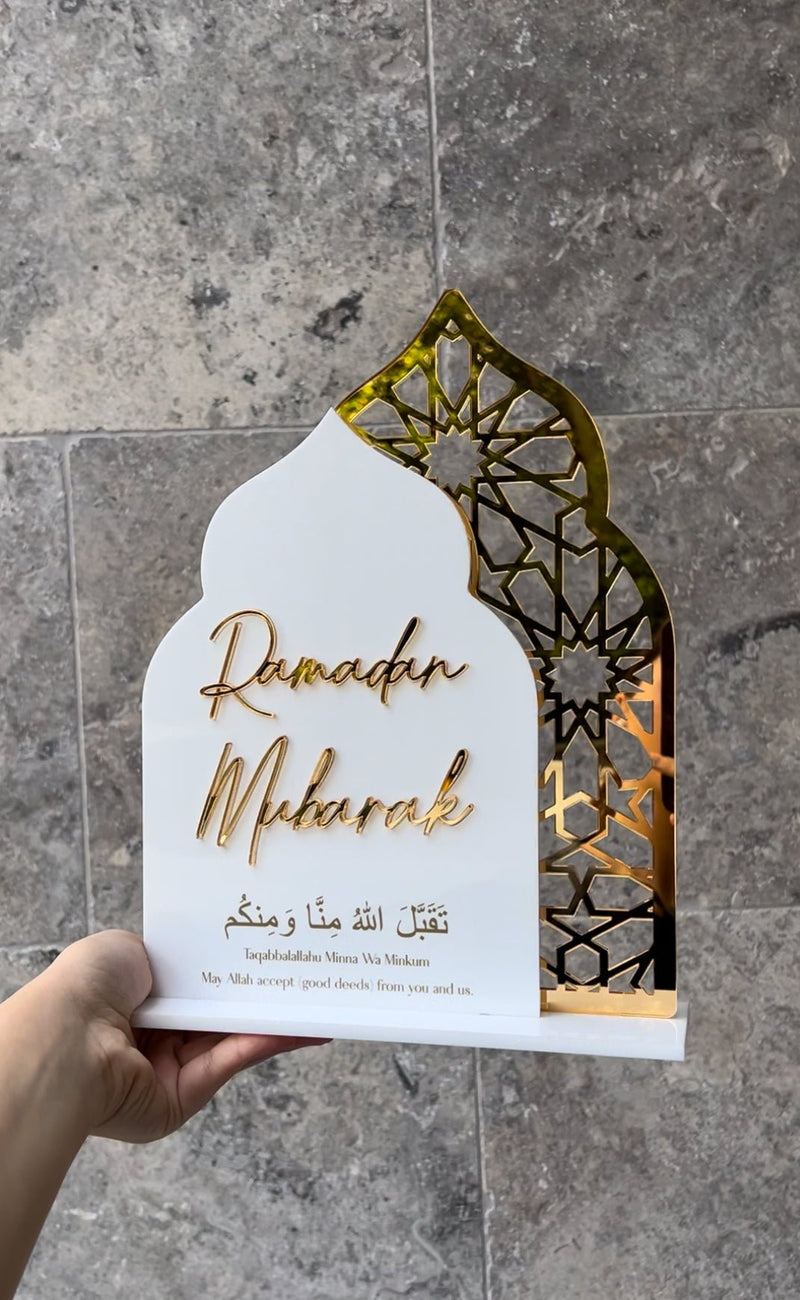 Ramadan
Mubarak
تَقَبَّلَ اللهُ مِنَّا وَمِنكُم
Taqabbalallahu Minna Wa Minkum
May Allah accept (good deeds) from you and us.